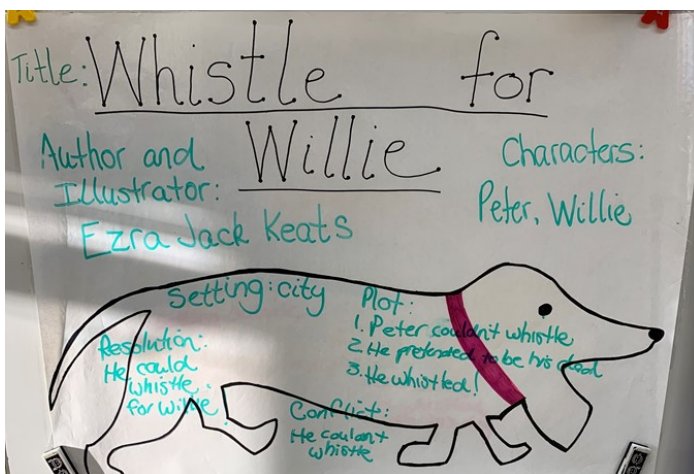 Title: Whistle for
Willie
Author and
Illustrator:
Ezra Jack Keats
Characters:
Peter, Willie
Setting: city
Plot:
1. Peter couldn't whistle
2. He pretended to be his dad
3. He whistled!
Resolution:
He could
whistle
for Willie
Conflict:
He couldn't
whistle